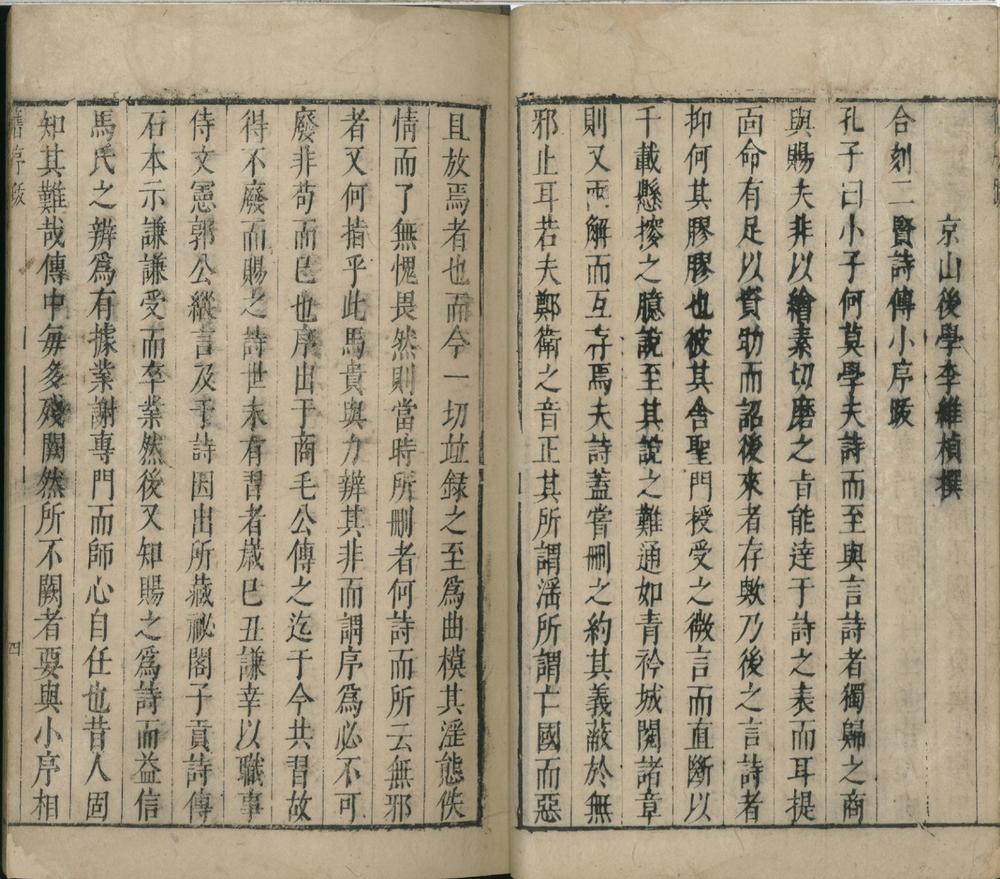 京山後學李維楨撰
合刻二賢詩傳小序跋
孔子曰小子何莫學夫詩而至與言詩者獨歸之商
與賜夫非以繪素切磨之旨能達于詩之表而耳提
面命有足以資助而詔後來者存歟乃後之言詩者
抑何其膠膠也彼其舍聖門授受之微言而直斷以
千載懸揆之臆說至其說之難通如青衿城闕諸章
則又兩解而互存焉夫詩蓋嘗刪之約其義蔽於無
邪止耳若夫鄭衛之音正其所謂滛所謂亡國而惡
且放焉者也而今一切竝録之至為曲模其滛態佚
情而了無愧畏然則當時所刪者何詩而所云無邪
者又何指乎此馬貴與力辨其非而謂序為必不可
廢非苟而已也序出于商毛公傳之迄于今共習故
得不廢而賜之詩世未有習者歲巳丑謙幸以職事
侍文憲郭公縱言及于詩因出所藏祕閣子貢詩傳
石本示謙謙受而卒業然後又知賜之為詩而益信
馬氏之辨為有據業謝專門而師心自任也昔人固
知其難哉傳中每多殘闕然所不闕者要與小序相
舊序跋
四